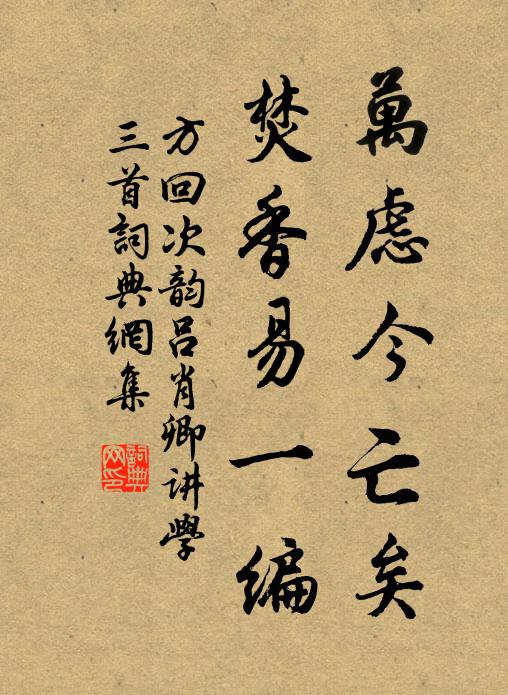 萬慮今亡矣
焚香易一编
方回次韵呂肖卿讲學
三首詞典網集
詞典網印